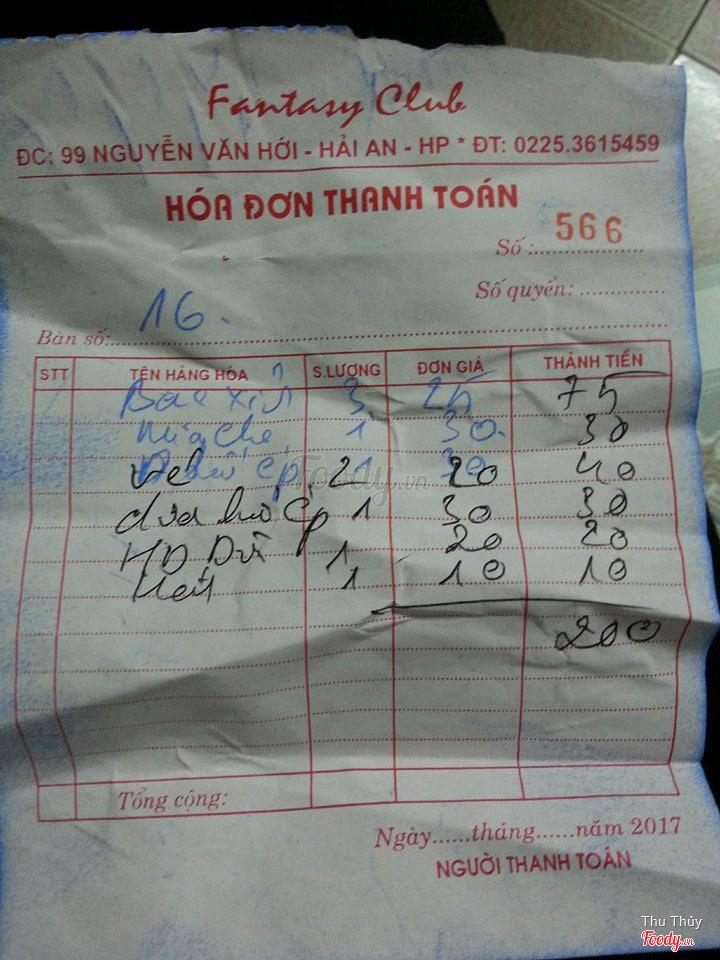 Fantasy Club
ĐC: 99 NGUYỄN VĂN HỚI - HẢI AN - HP * ĐT: 0225.3615459
HÓA ĐƠN THANH TOÁN
Số :..................... 566
Số quyển: ..............
Bàn số: 16.
STT TÊN HÀNG HÓA S.LƯỢNG ĐƠN GIÁ THÀNH TIỀN
Bạc xỉu 3 25 75
1 30. 30
2 20 40
dưa hấu ép 1 30 30
HD 1 20 20
1 10 10
200
Tổng cộng:
Ngày......tháng......năm 2017
NGƯỜI THANH TOÁN
Foody.vn
Thu Thủy
Foody.vn